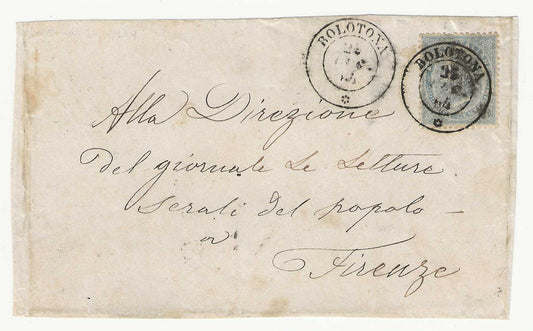 BOLOTONA
BOLOTONA
64
Alla Direzione
del giornale Le Letture
serali del popolo —
a
Firenze